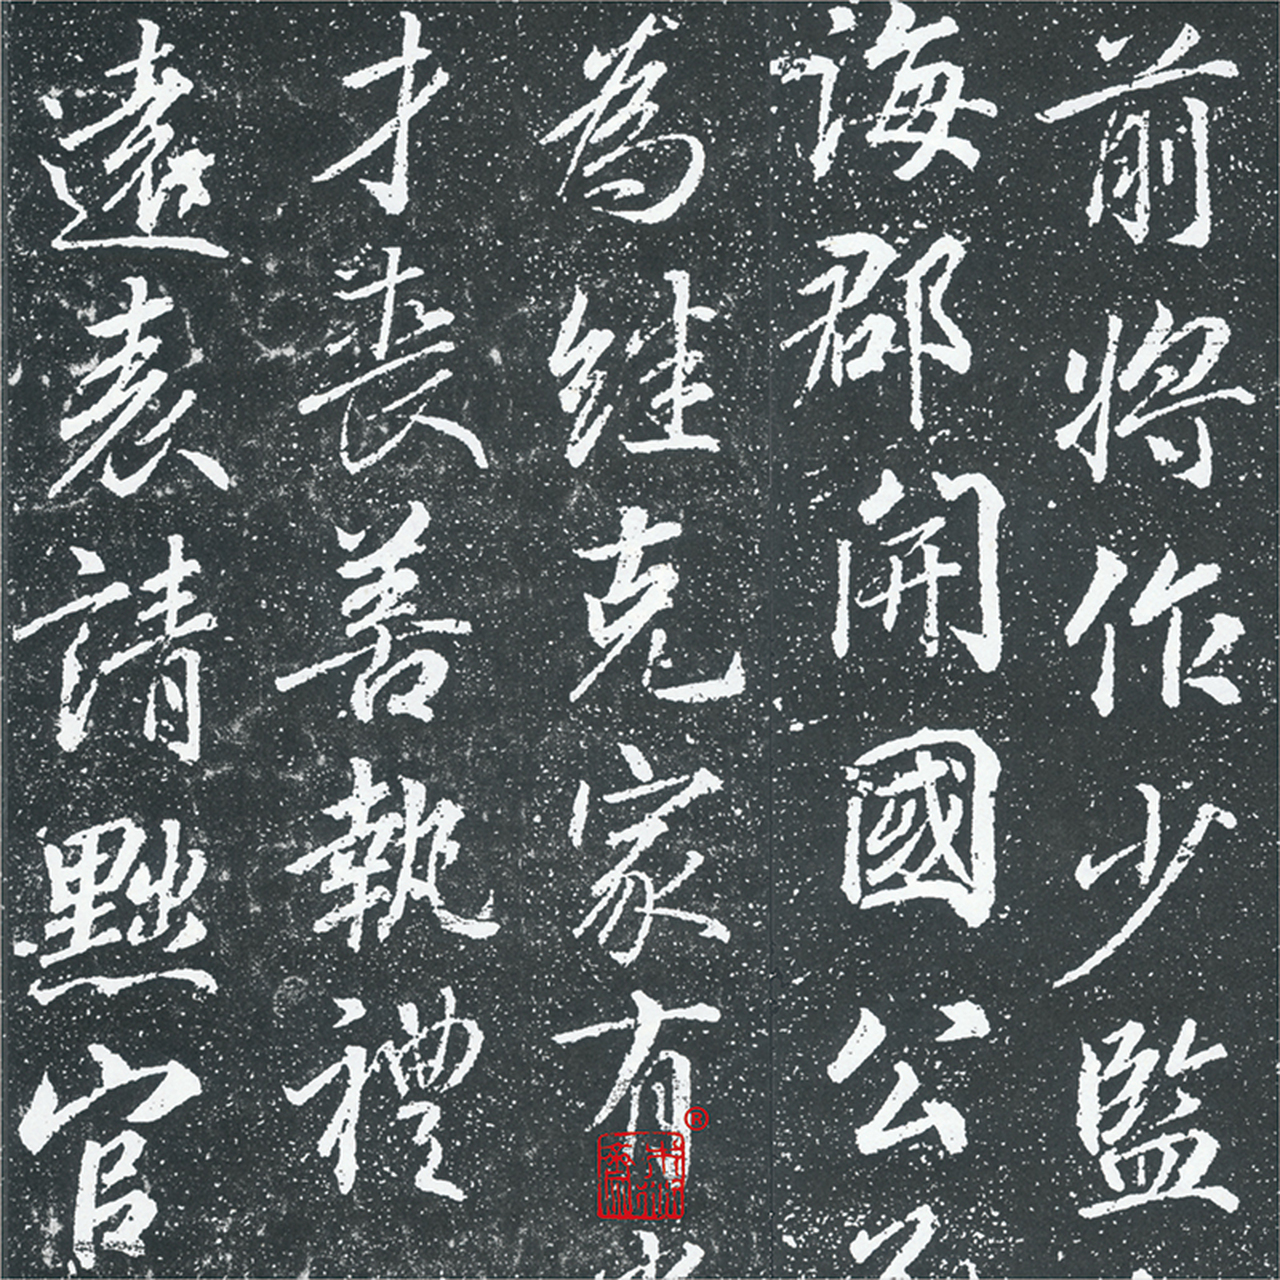 前將作少監
海郡開國公
為継克家有
才喪善執禮
遠表請黜官
®